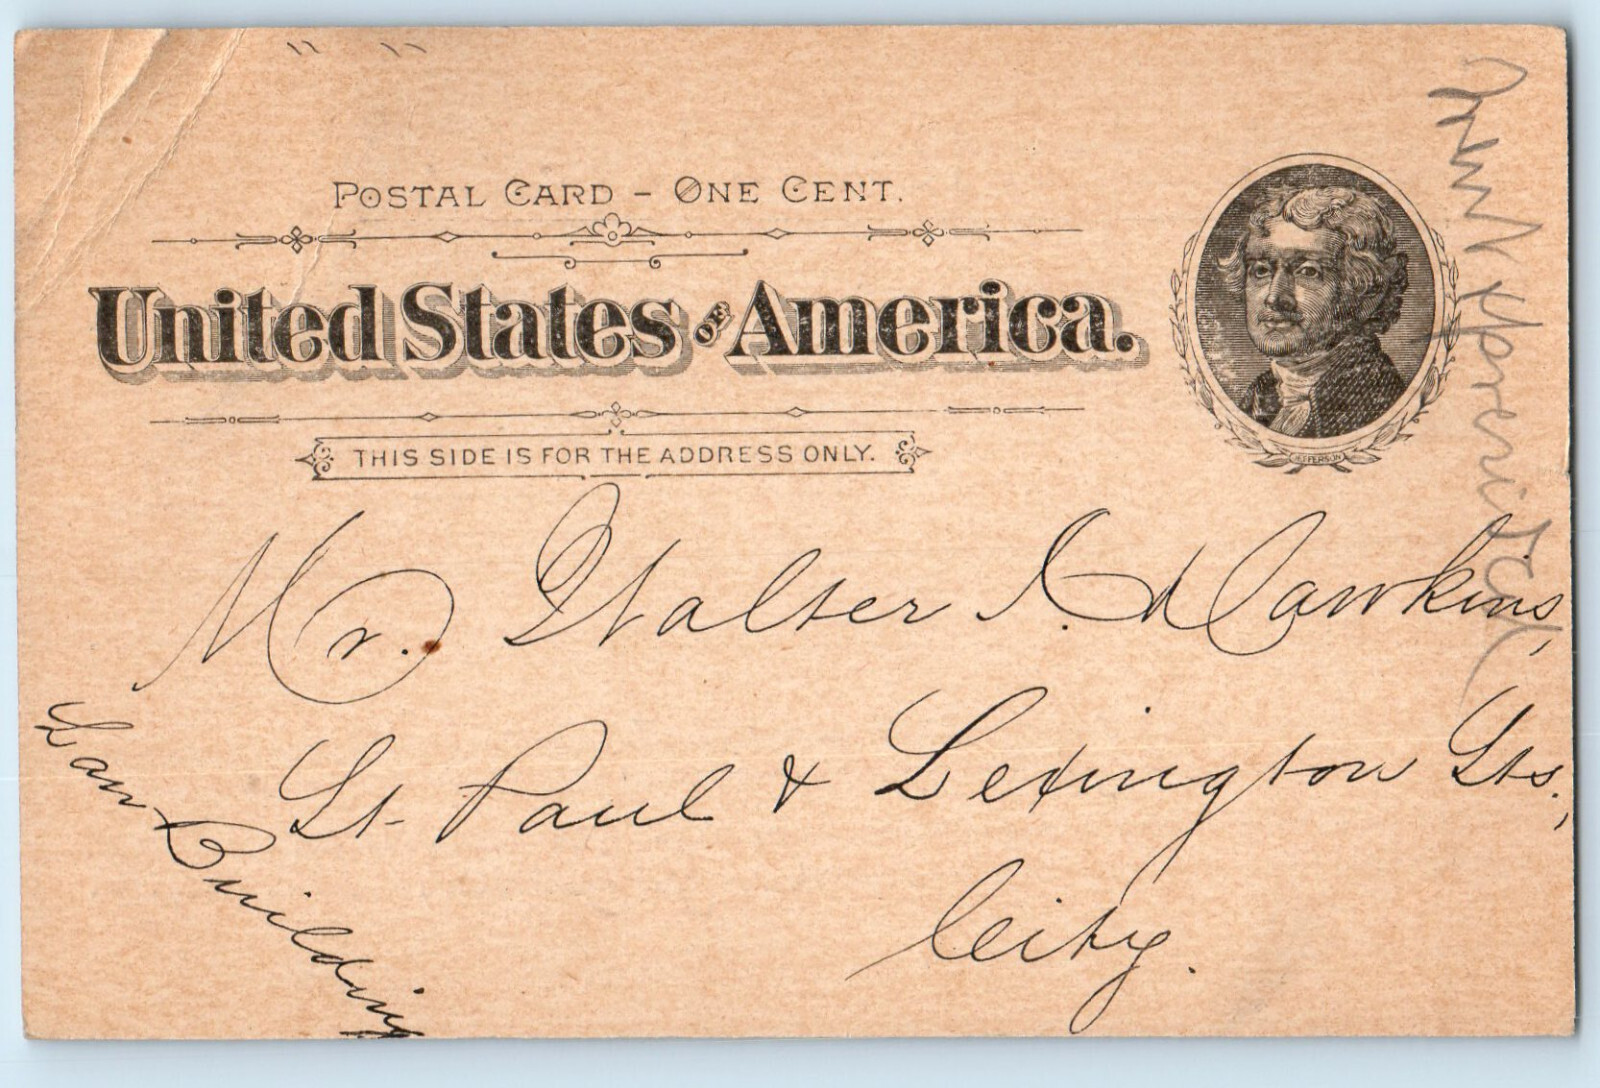 POSTAL CARD – ONE CENT.
United States OF America.
THIS SIDE IS FOR THE ADDRESS ONLY.
JEFFERSON
Mr. Walter I. Dawkins,
St. Paul & Lexington Sts.,
City.
Law Building